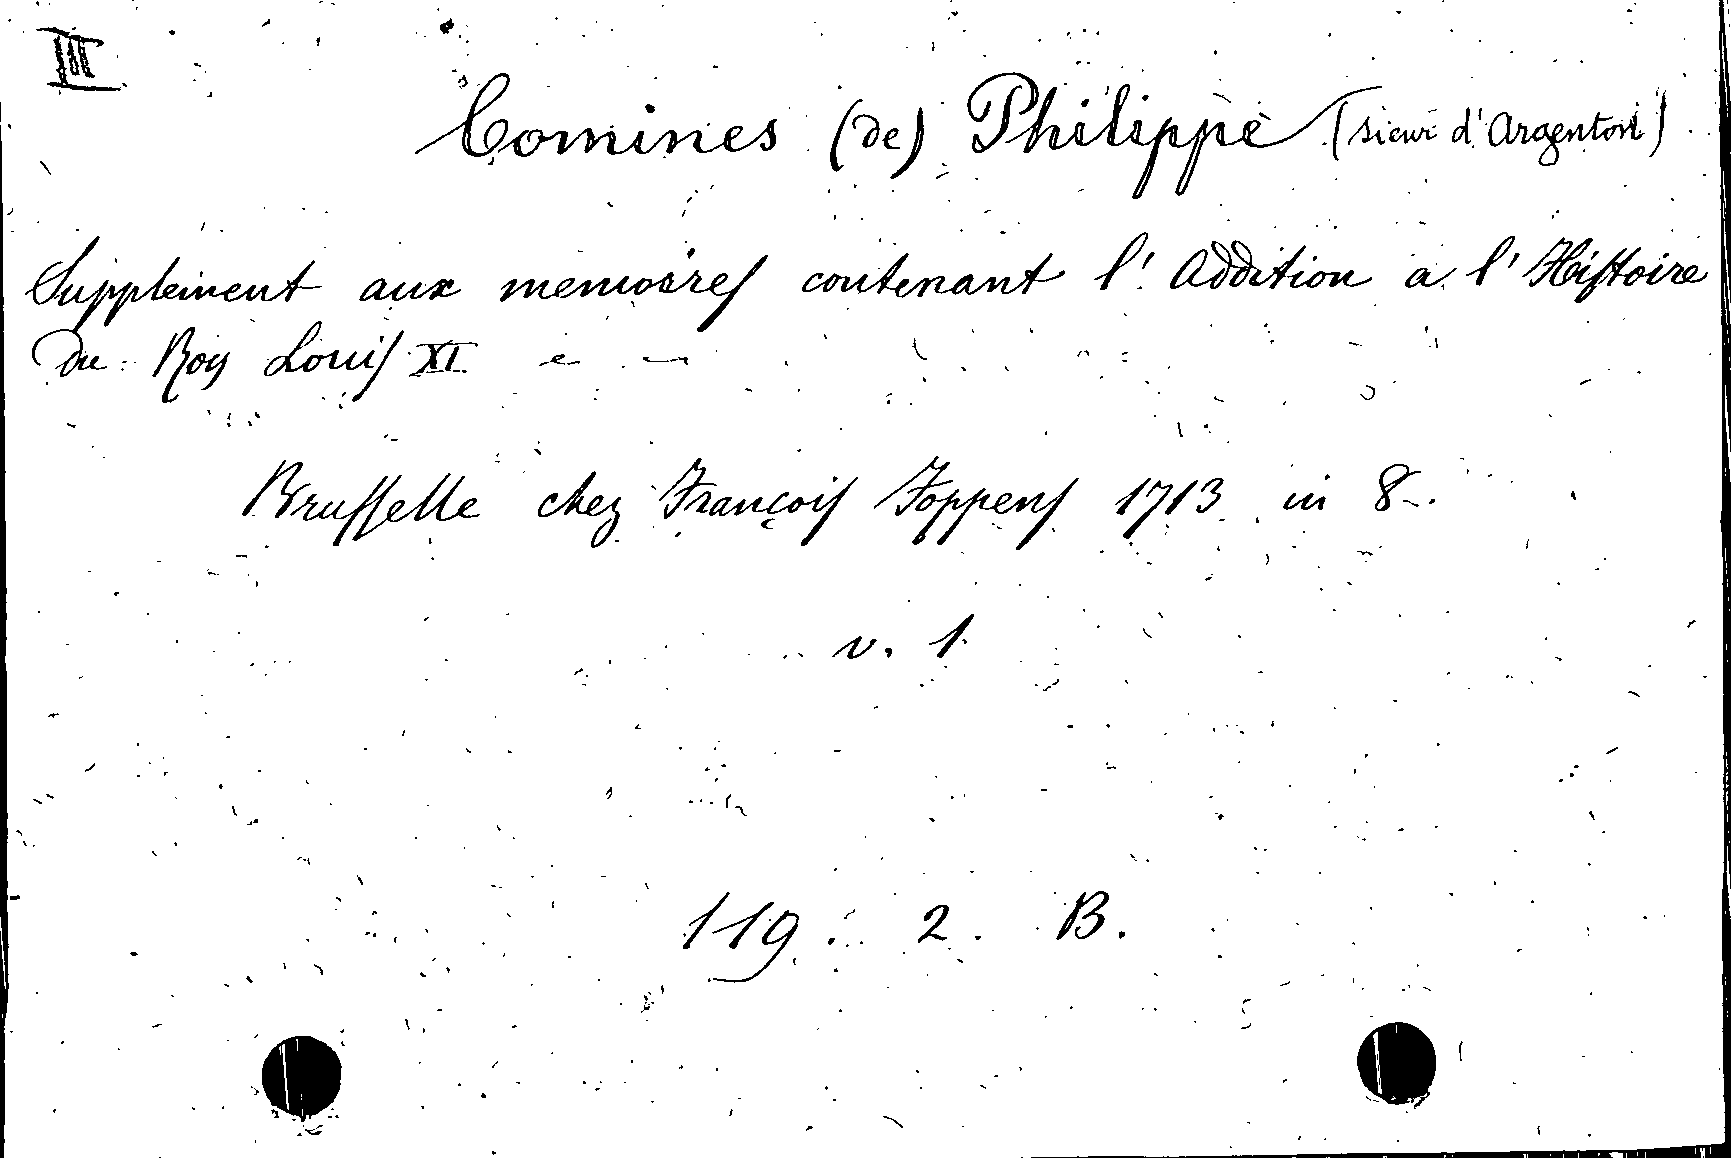 III
Comines (de) Philippe (sieur d'Argenton)
Supplement aux memoires contenant l'Addition a l'Histoire
du Roy Louis XI
Brusselle chez François Foppens 1713 in 8-.
v. 1
119. 2. B.